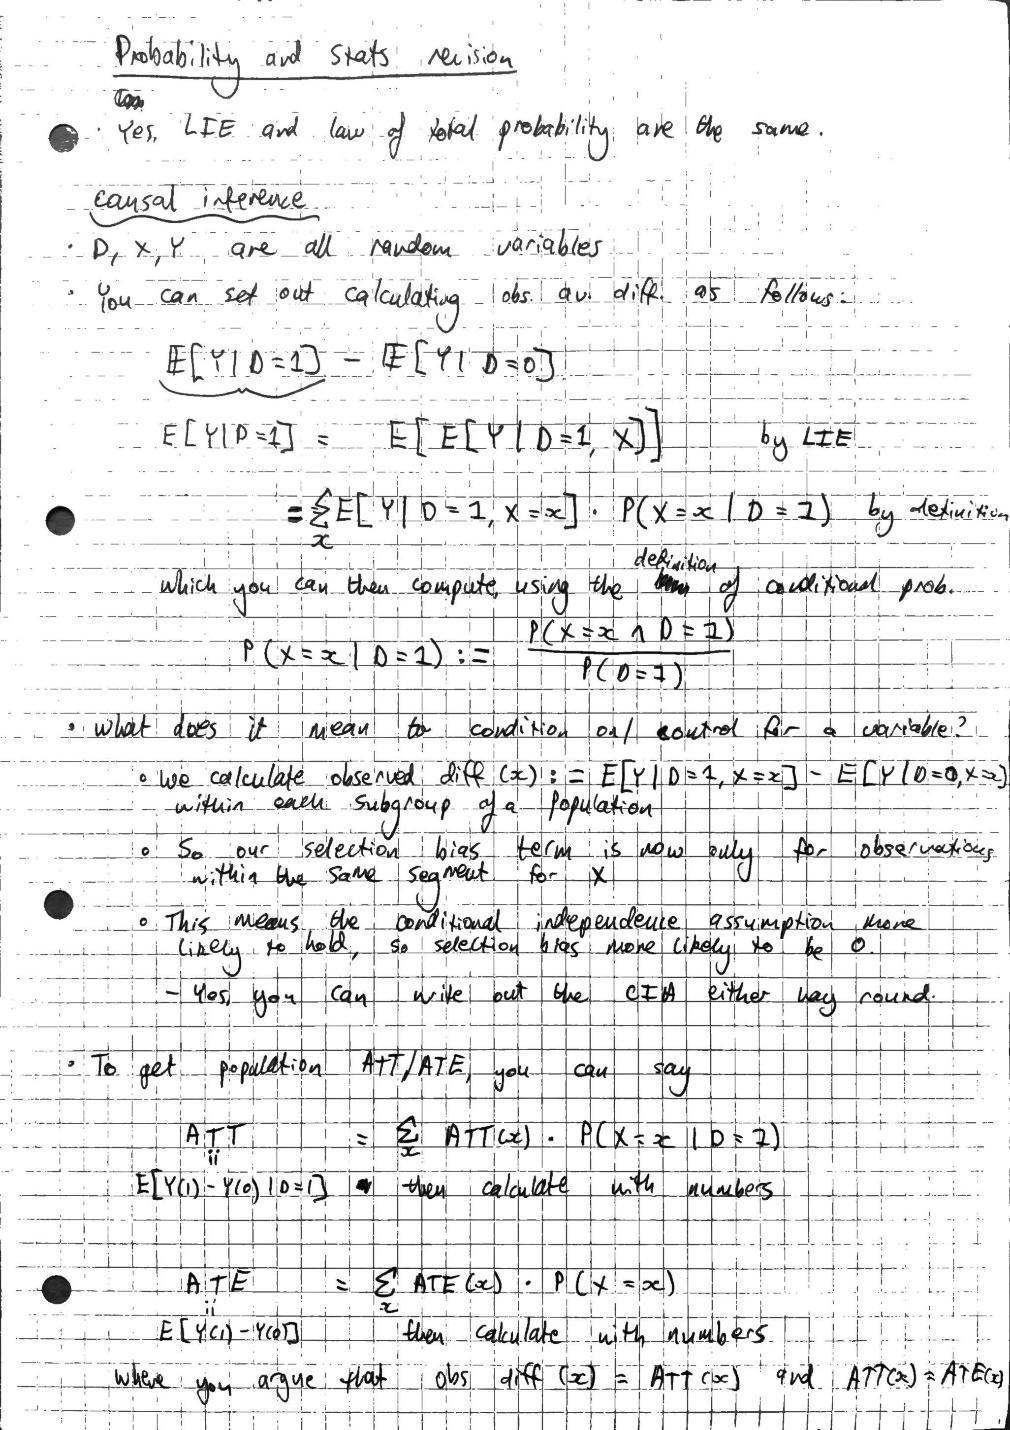 Probability and stats revision
· Yes, LIE and law of total probability are the same.
causal inference
· D, X, Y are all random variables
· You can set out calculating obs. av. diff. as follows:
E[Y|D=1] - E[Y|D=0]
E[Y|D=1] = E[E[Y|D=1, X]] by LIE
= Σ_x E[Y|D=1, X=x] · P(X=x|D=1) by definition
which you can then compute, using the definition of conditional prob.
P(X=x|D=1) := P(X=x ∩ D=1) / P(D=1)
· What does it mean to condition on/ control for a variable?
∘ we calculate observed diff (x) := E[Y|D=1, X=x] - E[Y|D=0, X=x]
within each subgroup of a population
∘ So our selection bias term is now only for observations
within the same segment for X
∘ This means the conditional independence assumption more
likely to hold, so selection bias more likely to be 0.
- Yes, you can write out the CIA either way round.
· To get population ATT/ATE, you can say
ATT = Σ_x ATT(x) · P(X=x|D=1)
E[Y(1)-Y(0)|D=1] then calculate with numbers
ATE = Σ_x ATE(x) · P(X=x)
E[Y(1)-Y(0)] then calculate with numbers
where you argue that obs diff (x) = ATT(x) and ATT(x) = ATE(x)